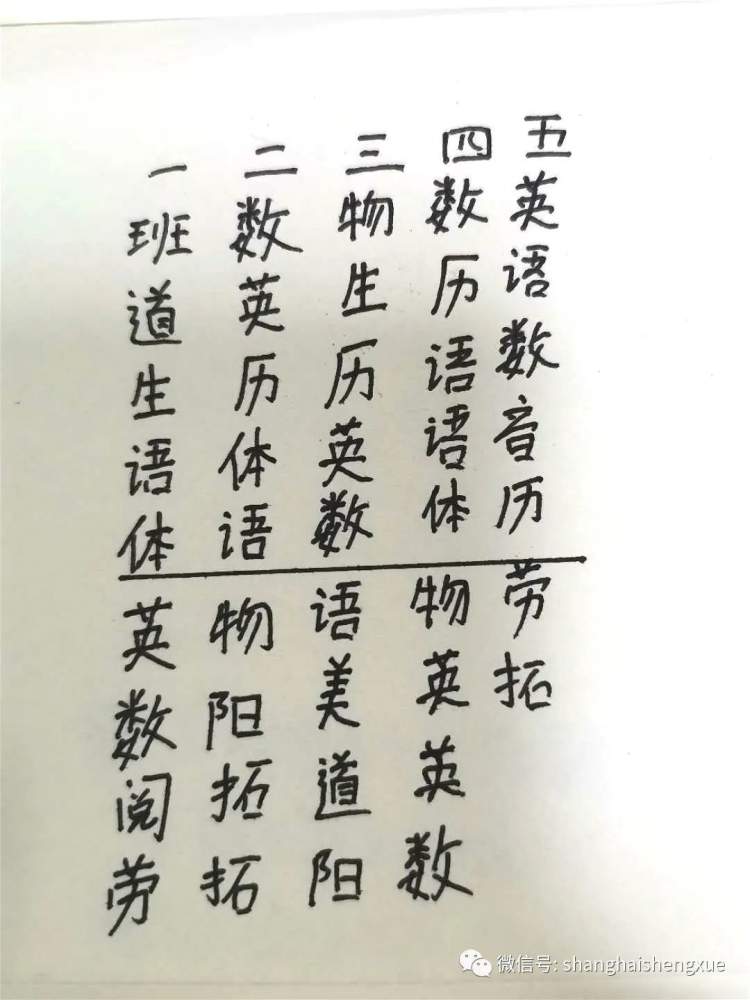 一 二 三 四 五
班 数 物 数 英
道 英 生 历 语
生 历 历 语 数
语 体 英 语 音
体 语 数 体 历
英 物 语 物 劳
数 阳 美 英 拓
阅 拓 道 英
劳 拓 阳 数
微信号: shanghaishengxue